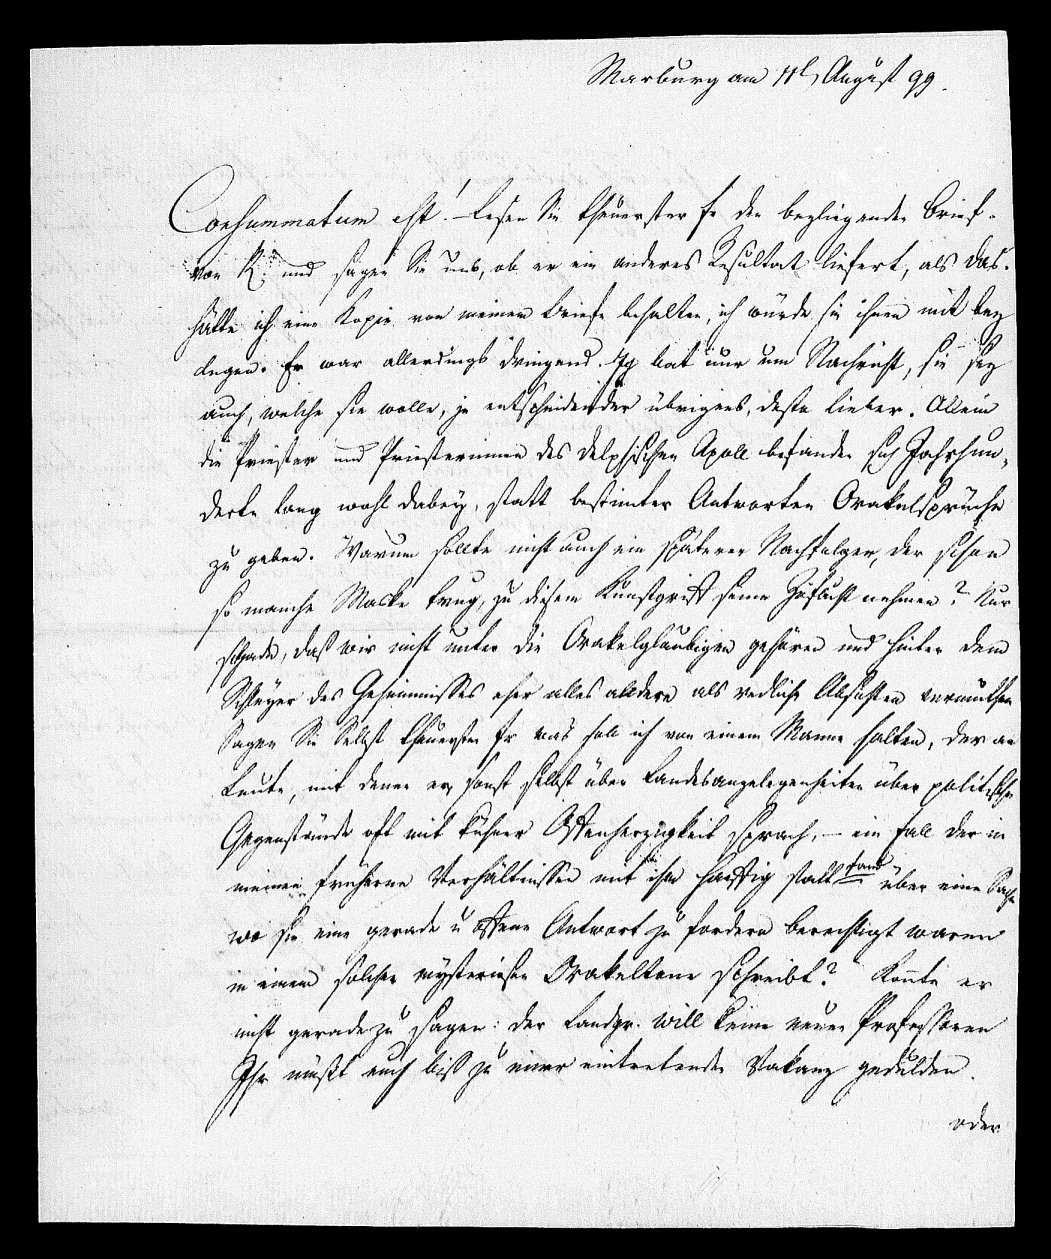 Marburg am 11t August 99.
Consummatum est! – Lesen Sie theuerster Fr den beyliegenden Brief
von K. und sagen Sie uns, ob er ein anderes Resultat liefert, als das.
Hätte ich eine Kopie von meinem Briefe behalten, ich würde sie ihnen mit bey
legen. Er war allerdings dringend. Ich bat nur um Nachricht, sie sey
auch, welche sie wolle, je entscheidender übrigens, desto lieber. Allein
die Priester und Priesterinnen des delphischen Apoll befanden sich Jahrhun„
derte lang wohl dabey, statt bestimter Antworten Orakelsprüche
zu geben. Warum sollte nicht auch ein späterer Nachfolger, der schon
so manche Maske trug, zu diesem Kunstgriff seine Zuflucht nehmen? Nur
schade, daß wir nicht unter die Orakelgläubigen gehören und hinter dem
Schleyer des Geheimnisses eher alles andere als redliche Absichten vermuthen
Sagen Sie Selbst theuerster Fr was soll ich von einem Manne halten, der an
Leute, mit denen er sonst selbst über Landesangelegenheiten über politische
Gegenstände oft mit kühner Offenherzigkeit sprach, – ein Fall der in
meinen früheren Verhältnissen mit ihm häufig statt fand – über eine Sache
wo sie eine gerade u offene Antwort zu fordern berechtigt waren
in einem solchen mysteriosen Orakeltone schreibt? Konnte er
nicht geradezu sagen: der Landgr. will keine neuen Professoren
Ihr müßt euch biß zu einer eintretenden Vakanz gedulden.
oder